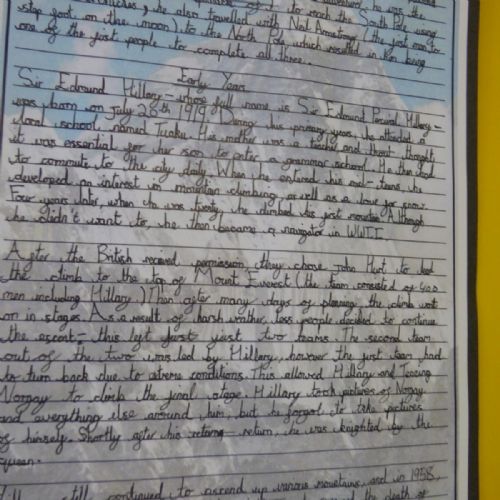 to reach the South Pole using
vehicles, he also travelled with Neil Armstrong (the first man to
step foot on the moon) to the North Pole which resulted in him being
one of the first people to complete all three.
Early Years
Sir Edmund Hillary - whose full name is Sir Edmund Percival Hillary -
was born on July 20th 1919. During his primary years, he attended a
local school named Tuaku. His mother was a teacher and thought
it was essential for her son to enter a grammar school. He then had
to commute to the city daily. When he entered his mid-teens, he
developed an interest in mountain climbing as well as a love for snow.
Four years later, when he was twenty, he climbed his first mountain. Although
he didn't want to, he then became a navigator in WWII.
After the British received permission, they chose John Hunt to lead
the climb to the top of Mount Everest (the team consisted of 400
men including Hillary.) Then after many days of planning the climb went
on in stages. As a result of harsh weather less people decided to continue
the ascent - this left just two teams. The second team
out of the two was led by Hillary, however the first team had
to turn back due to extreme conditions. This allowed Hillary and Tenzing
Norgay to climb the final stage. Hillary took pictures of Norgay
and everything else around him, but he forgot to take pictures
of himself. Shortly after his return, he was knighted by the
queen.
still continued to ascend up various mountains, and in 1958,
the death of